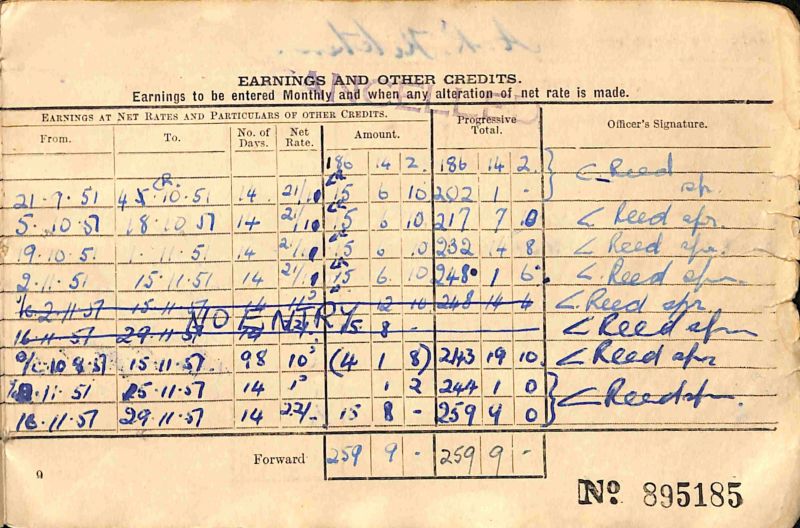 CANCELLED
EARNINGS AND OTHER CREDITS.
Earnings to be entered Monthly and when any alteration of net rate is made.
EARNINGS AT NET RATES AND PARTICULARS OF OTHER CREDITS.
From. To. No. of Days. Net Rate. Amount. Progressive Total. Officer's Signature.
186 14 2. 186 14 2. C Reed
21.9.51 4.10.51 14. 21/10 15 6 10 202 1 - spr.
5.10.51 18.10.51 14 21/10 15 6 10 217 7 0 C Reed spr.
19.10.51 1.11.51 14 21/10 15 6 10 232 14 8 C Reed spr.
2.11.51 15.11.51 14 21/10 15 6 10 248 1 6 C Reed spr.
2.11.51 15.11.51 14 12 10 248 14 4 C Reed spr
NO ENTRY
16.11.51 29.11.51 14 22/- 15 8 - C Reed spr
10.8.51 15.11.51 98 10 (4 1 8) 243 19 10. C Reed spr
11.51 15.11.51 14 1 1 2 244 1 0 C Reed spr.
16.11.51 29.11.51 14 22/- 15 8 - 259 9 0
Forward 259 9 - 259 9 -
9
No 895185